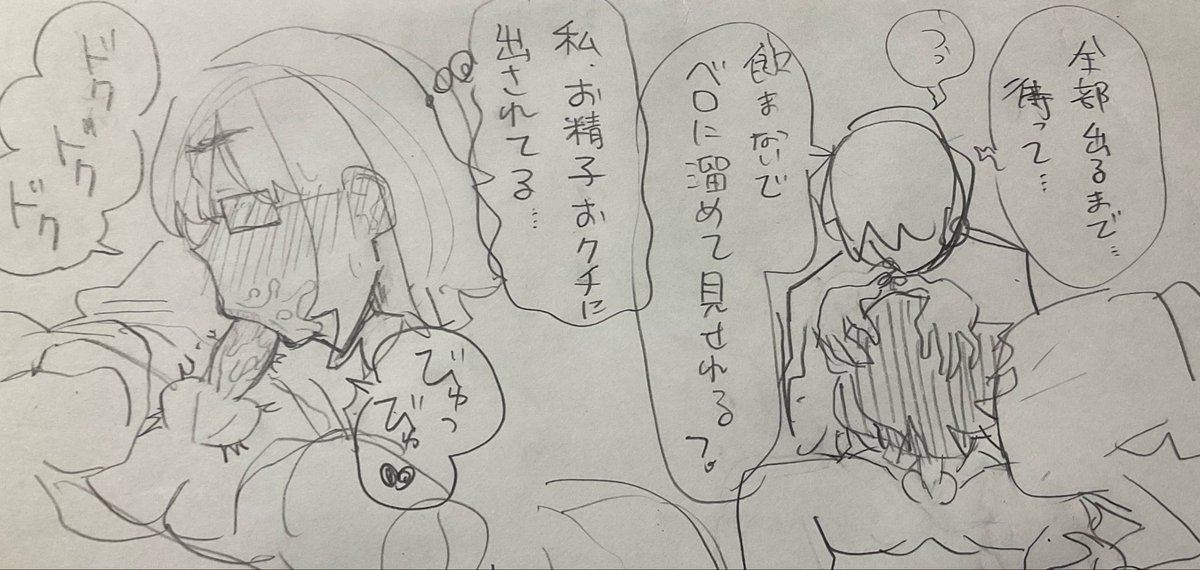 全部出るまで…
待って…
飲まないで
ベロに溜めて見せれる?。
私、お精子おクチに
出されてる…
びゅっ
びゅ
ドク
ドック
ドク